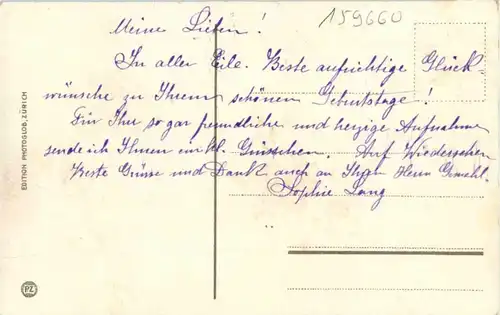 159660
Meine Lieben!
In aller Eile. Beste aufrichtige Glück-
wünsche zu Ihrem schönen Geburtstage!
Für Ihr so gar freundliche und herzige Aufnahme
sende ich Ihnen ein kl. Grüsschen. Auf Wiedersehen
Beste Grüsse und Dank auch an Ihren Herrn Gemahl.
Sophie Lang
EDITION PHOTOGLOB, ZÜRICH
PZ